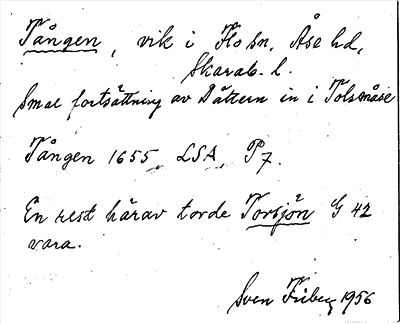 Tången, vik i Flo sn, Åse hd,
Skarab. l.
Smal fortsättning av Dättern in i Tolsmåse
Tången 1655, LSA, P7.
En rest härav torde Torsjön G 42
vara.
Sven Friberg 1956